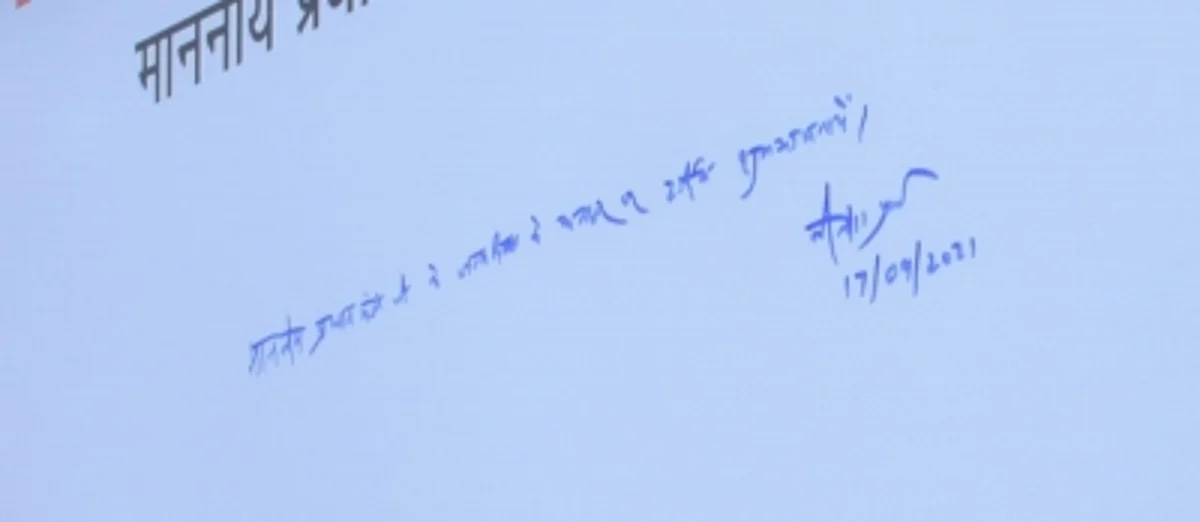 माननीय प्रधा
माननीय प्रधानमंत्री जी के जन्मदिवस के अवसर पर हार्दिक शुभकामनायें।
17/09/2021